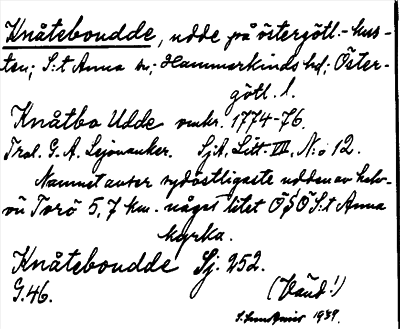 Knåteboudde, udde på östergötl.-kus-
ten; S:t Anna sn; Hammarkinds hd; Öster-
götl. l.
Knåtbo Udde omkr. 1774-76.
Trol. G. A. Lejonanker. SjA, Litt VIII, N:o 12.
Namnet avser sydöstligaste udden av halv-
ön Torö 5,7 km. något litet Ö$Ö S:t Anna
kyrka.
Knåteboudde Sj. 252.
G.46.
(Vänd!)
1939.